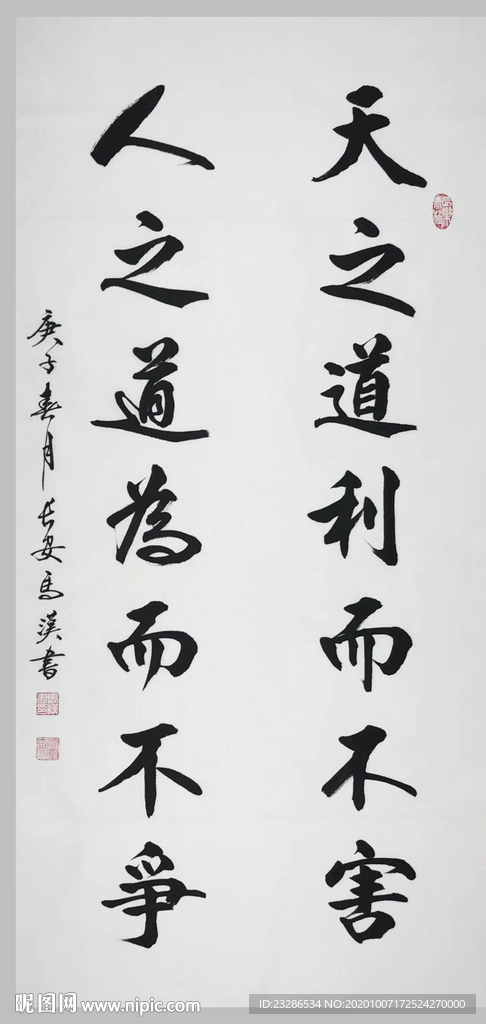 天之道利而不害
人之道為而不爭
庚子春月長安馬漢書
昵图网 www.nipic.com
ID:23286534 NO:20201007172524270000